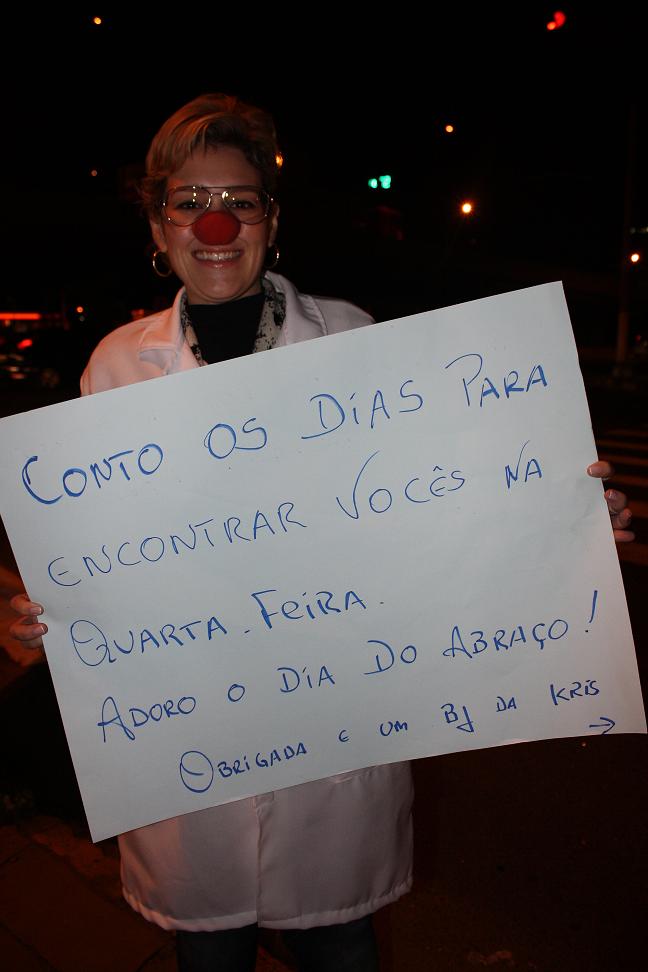 CONTO OS DIAS PARA
ENCONTRAR VOCÊS NA
QUARTA-FEIRA.
ADORO O DIA DO ABRAÇO!
OBRIGADA E UM BJ DA KRIS
→